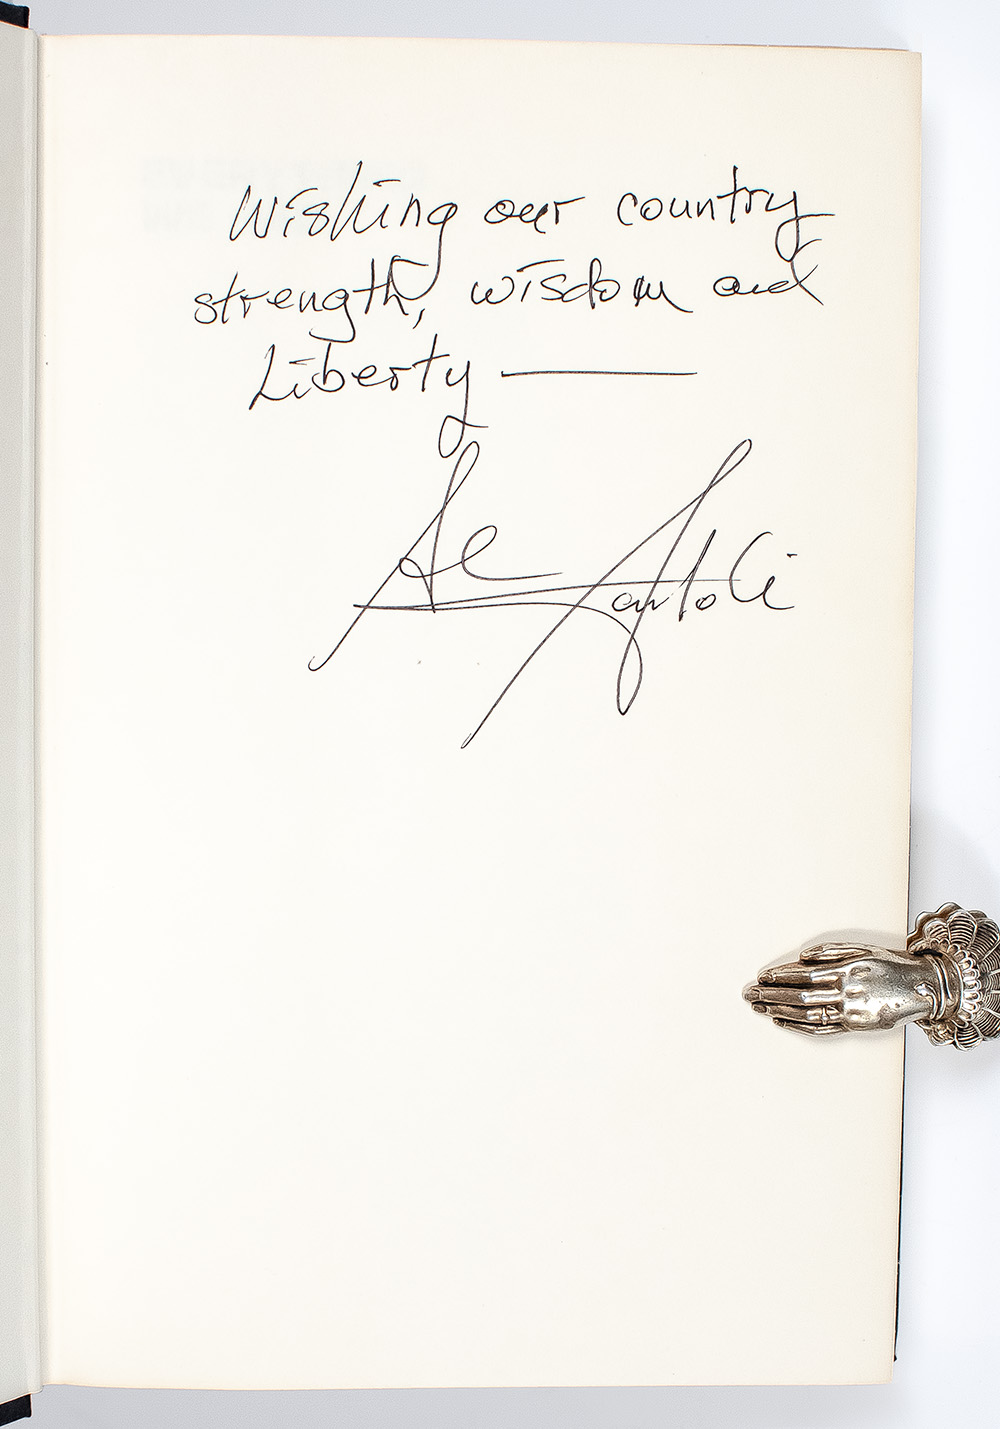 Wishing our country
strength, wisdom and
Liberty —
Al Santoli